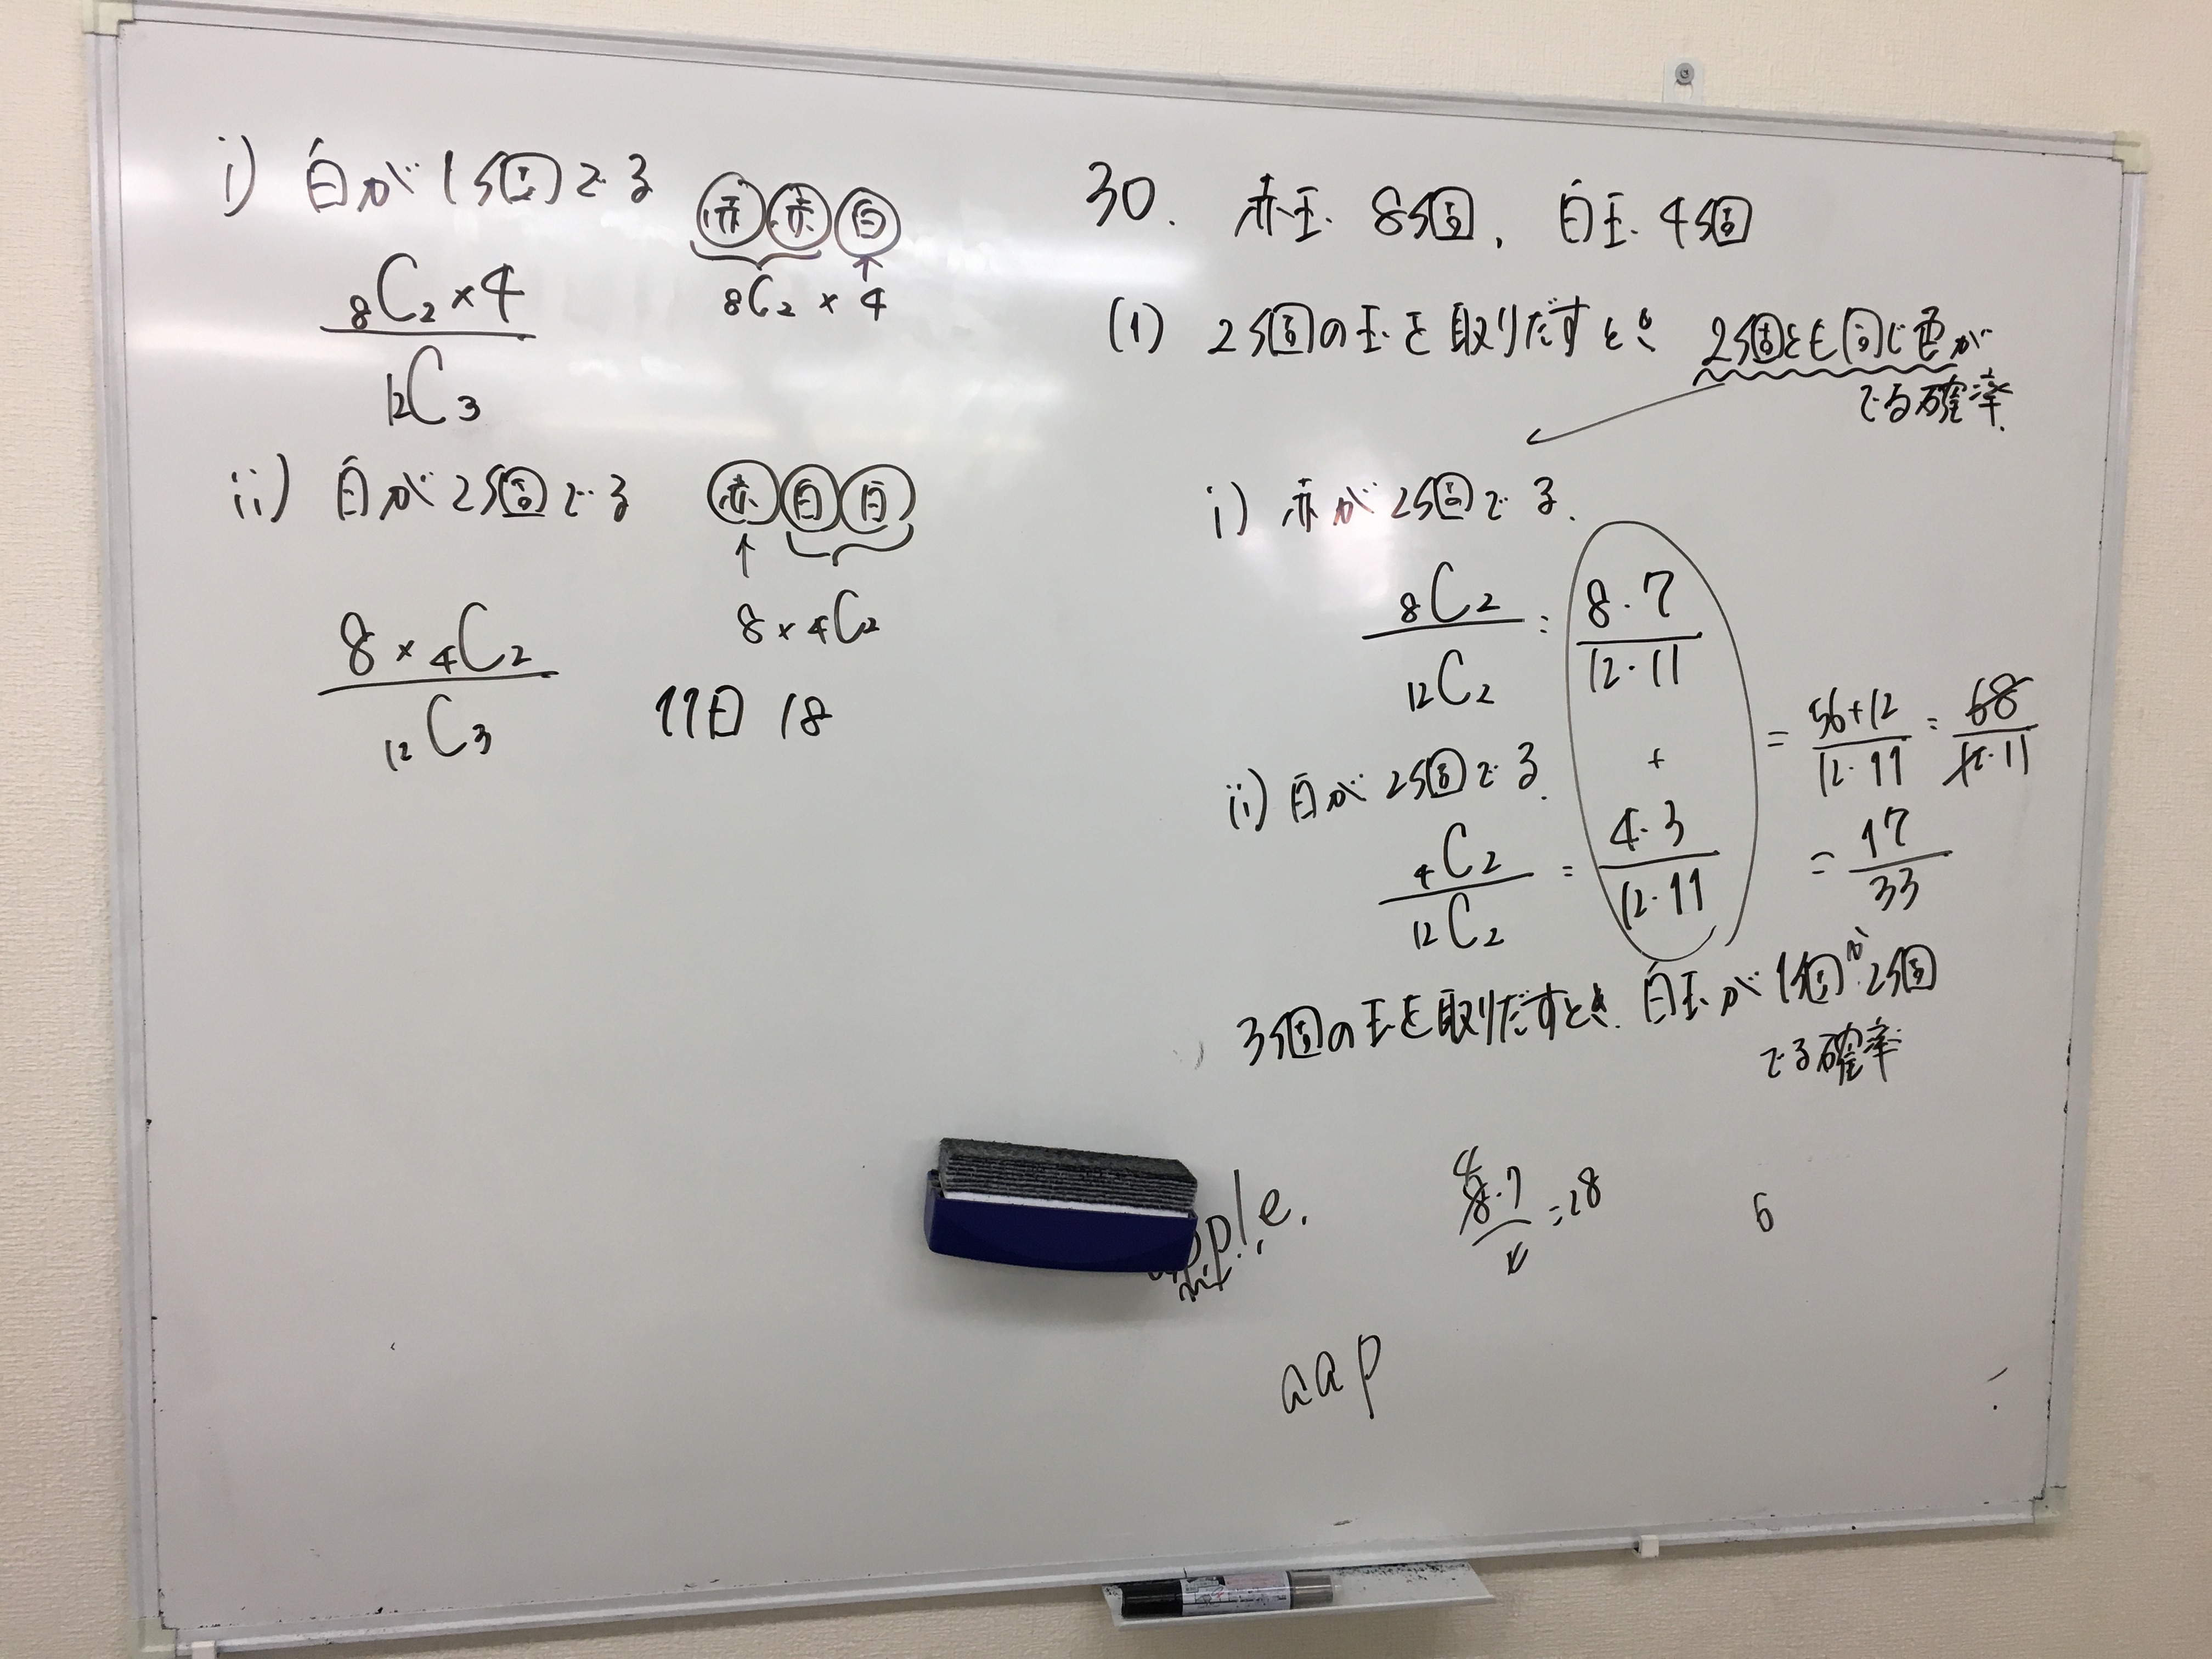 30. 赤玉 8個, 白玉 4個
(1) 2個の玉を取りだすとき 2個とも同じ色が
でる確率.
i) 赤が2個でる.
8C2 / 12C2 = 8・7 / 12・11
+
ii) 白が2個でる.
4C2 / 12C2 = 4・3 / 12・11
= 56+12 / 12・11 = 68 / 12・11
= 17 / 33
3個の玉を取りだすとき. 白玉が1個か2個
でる確率
8・7 = 28
4
6
aap
i) 白が1個でる
赤 赤 白
8C2 × 4
8C2×4 / 12C3
ii) 白が2個でる
赤 白 白
8 × 4C2
8 × 4C2 / 12C3
11日 18